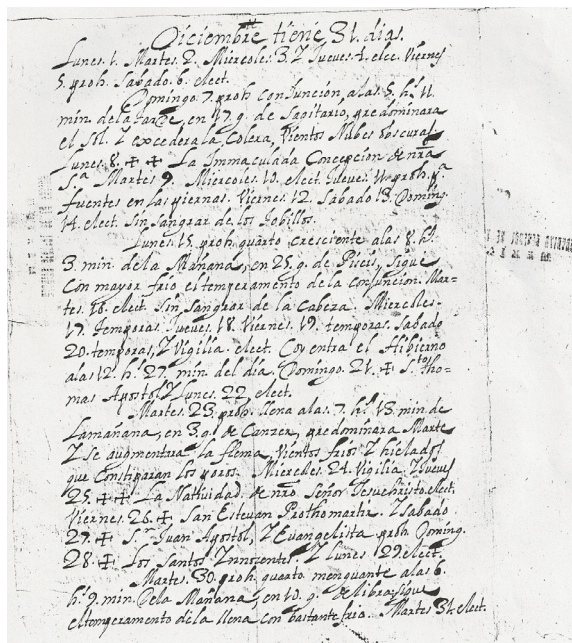 Diciembre tiene 31. dias.
Lunes. 1. Martes. 2. Miercoles. 3. Z Jueves. 4. elec. Viernes
5. proh. Sabado. 6. elect.
Domingo. 7. proh conjuncion, a las. 5. hs. 11.
min. de la tarde, en 17. g. de Sagitario, predominara
el Sol. Z excedera la Colera, Vientos Nubes obscuras
Lunes. 8. ✠ ✠ La Immaculada Concepcion de nra
Sa. Martes 9. Miercoles. 10. elect. Jueves. 11. proh. pa.
fuentes en las piernas. Viernes. 12. Sabado 13. Doming.
14. elect. Sin sangrar de los tobillos.
Lunes. 15. proh. quarto cresciente a las 8. hs.
3. min. de la Mañana, en 25. g. de Piscis, Sigue
Con mayor frio el temperamento de la conjuncion. Mar-
tes. 16. elect. Sin sangrar de la Cabeza. Miercoles-
17. temporas. Jueves. 18. Viernes. 19. temporas. Sabado
20. temporas, Z Vigilia. elect. Coy entra el Hibierno
a las 12. hs. 27. min. del dia. Domingo. 21. ✠ Sto. Tho-
mas Apostol, Z Lunes. 22. elect.
Martes. 23. proh. llena a las. 7. hs. 13. min. de
La mañana, en 3. g. de Canzer, predominara Marte
Z se augmentra la flema, Vientos frios Z hielados
que Constiparan los poros. Miercoles. 24. Vigilia. Z Jueves
25. ✠ ✠. La Natividad. de nro. Señor Jesuchristo. elect.
Viernes. 26. ✠. San Estevan Prothomartir. Z Sabado
27. ✠ S. Juan Apostol, Z Evangelista proh. Doming.
28. ✠. Los Santos Innocentes. Z Lunes. 29. elect.
Martes. 30. proh. quarto menguante a las 6.
hs. 9. min. de la Mañana, en 10. g. de libra, sigue
el temperamento de la llena con bastante frio. Martes 31. elect.